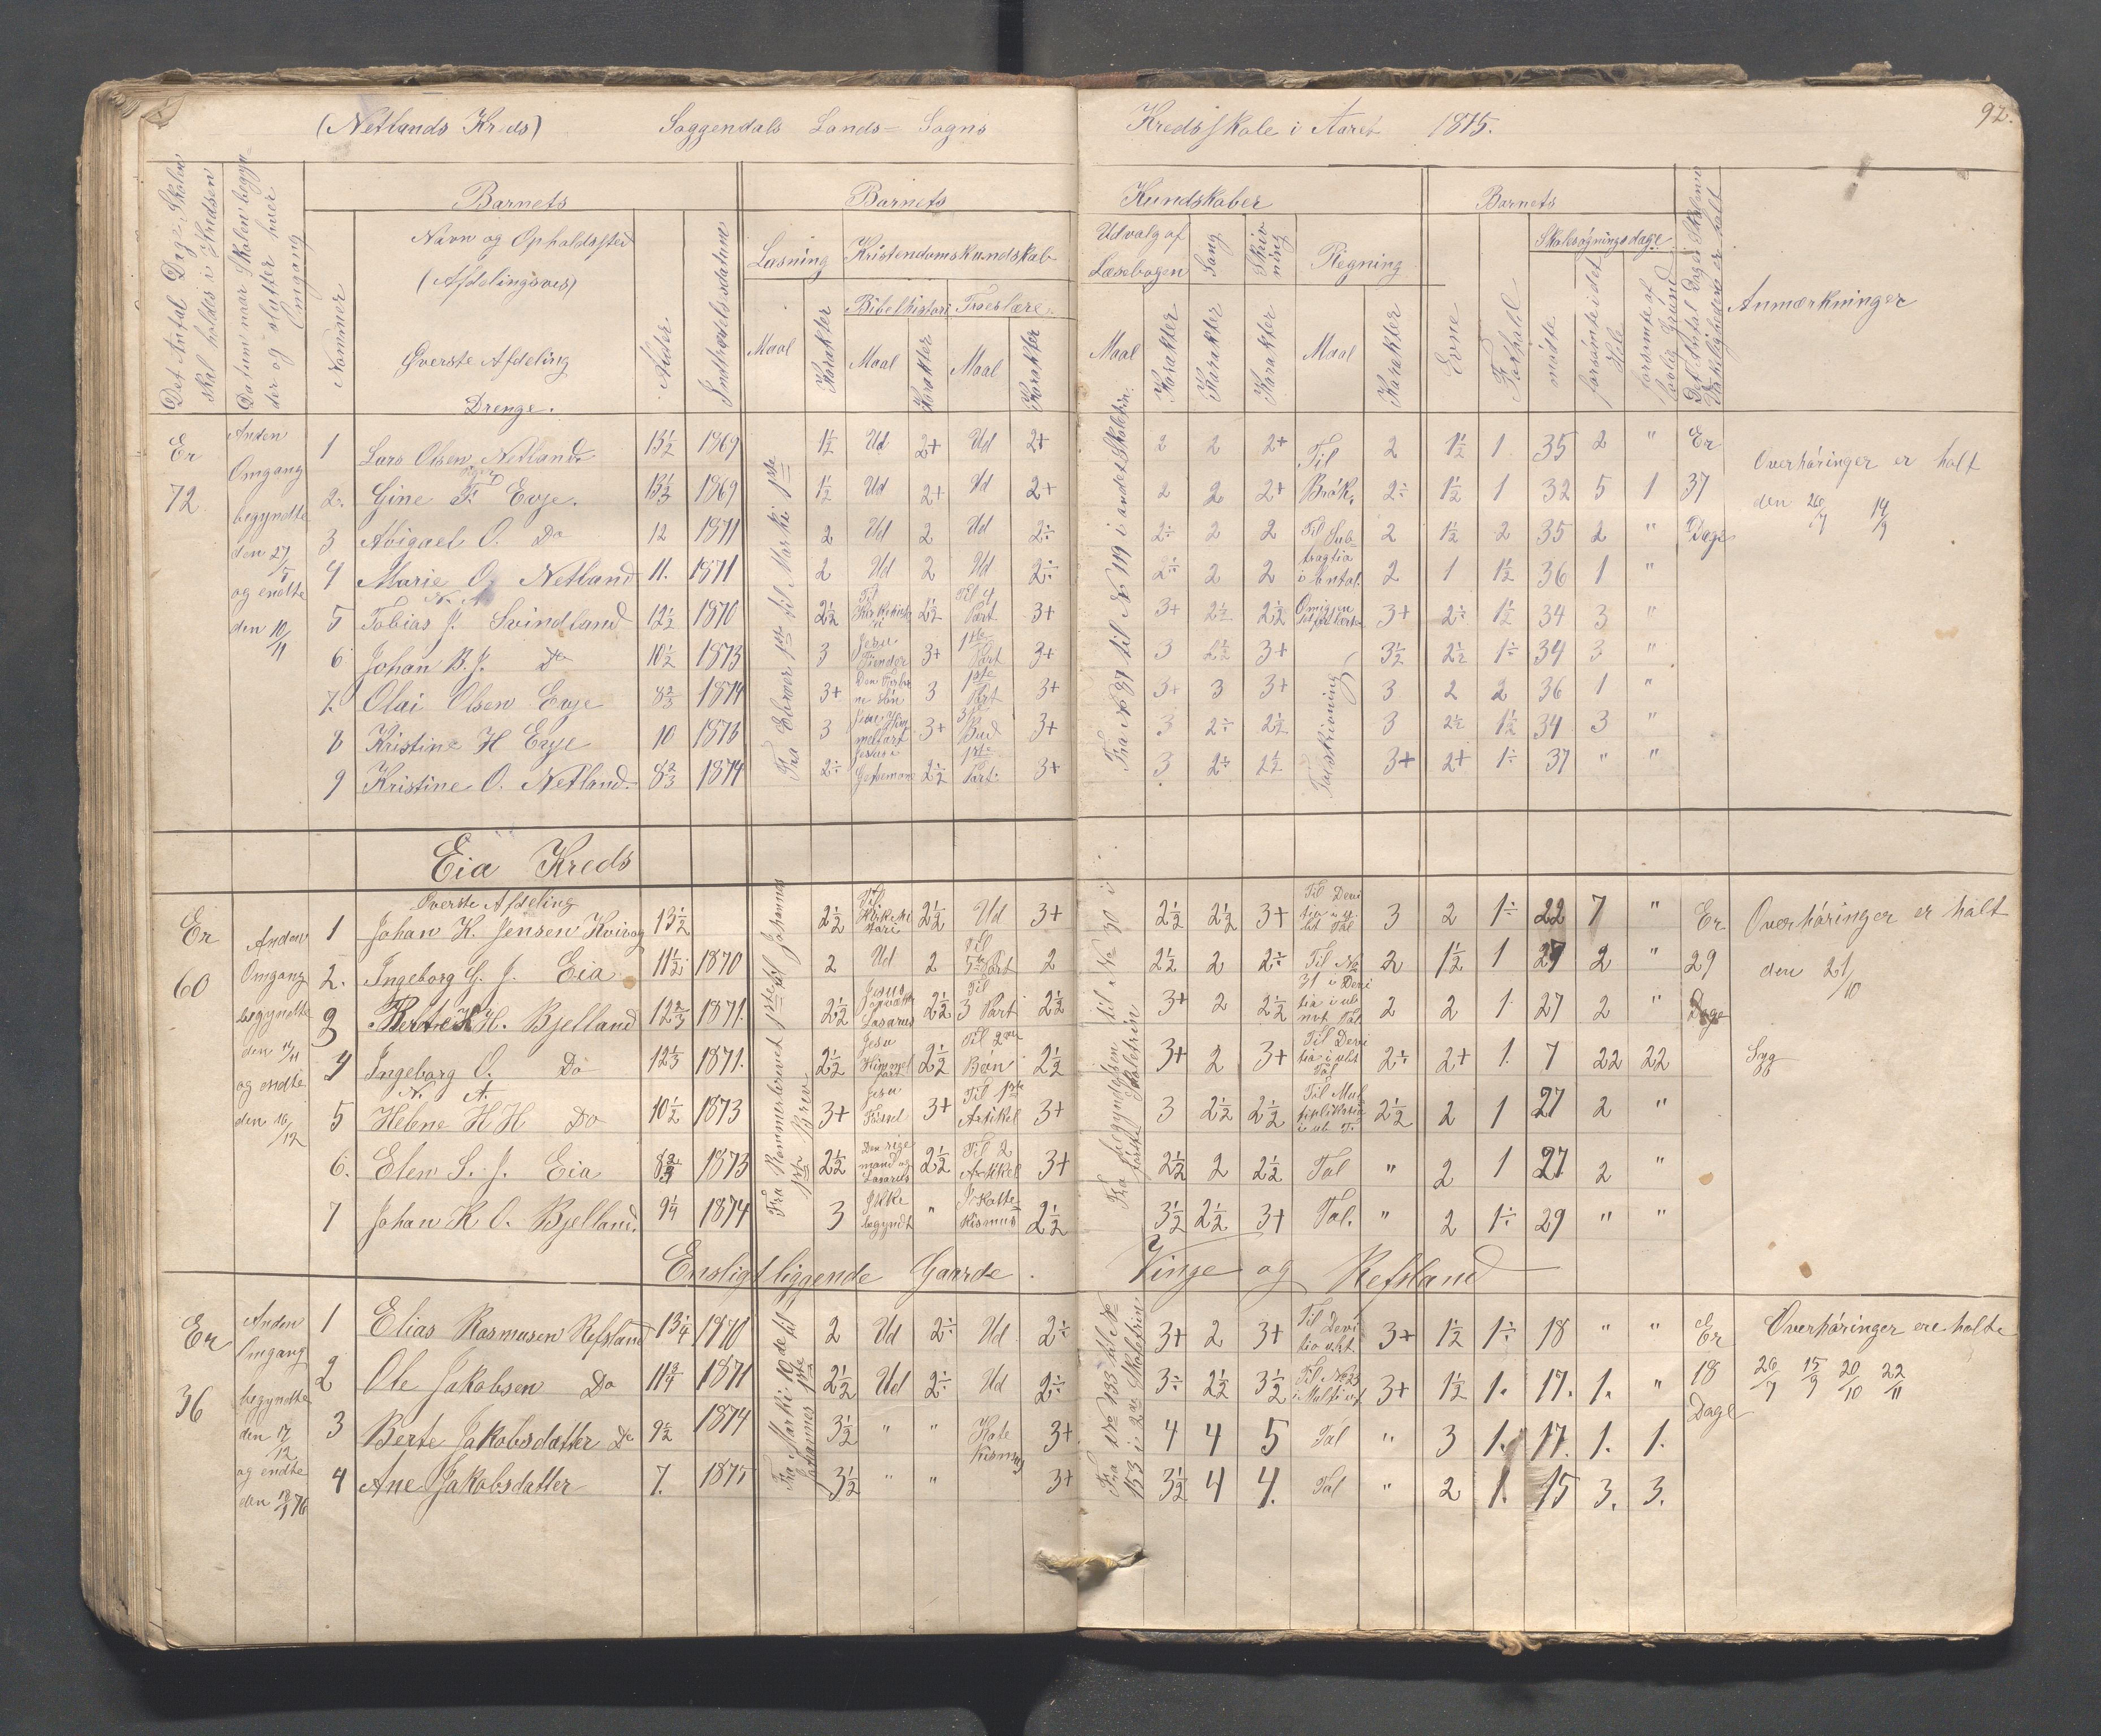 (Netlands Kreds) Soggendals Lands= Sogns Kredsskole i Aaret 1875. 92.
Det Antal Dage Skolen skal holdes i Kredsen
Datum naar Skolen begynder og slutter hver Omgang
Nommer
Barnets
Navn og Opholdssted
(Afdelingsvis)
Øverste Afdeling
Drenge.
Alder.
Indtrædelsesdatum
Barnets
Læsning Kristendomskundskab
Bibelhistori Troeslære
Maal Karakter Maal Karakter Maal Karakter
Kundskaber
Udvalg af Læsebogen Sang Skrivning Regning
Maal Karakter Karakter Karakter Maal Karakter
Barnets
Evne Forhold
Skolesøgningsdage
mødte forsømte i det Hele forsømte af lovlig Grund
Det Antal Dage Skolen i Virkeligheden er holt
Anmærkninger
Er 72
Anden Omgang begyndte den 27/5 og endte den 10/11
Fra Ebræer 1ste til Marki 1ste
Fra No 87 til No 119 i andet Skoletrin
1 Lars Olsen Netland 13½ 1869 1½ Ud 2+ Ud 2+ 2 2 2+ Til 2 1½ 1 35 2 " Er
2. Gine F Eeye. 13⅓ 1869 1½ Ud 2+ Ud 2+ 2 2 2+ Brøk. 2÷ 1½ 1 32 5 1 37
3 Abigael O. Do 12 1871 2 Ud 2 Ud 2÷ 2÷ 2 2 Til Sub- 2 1½ 2 35 2 " Dage
4 Marie O. Netland 11. 1871 2 Ud 2 Ud 2÷ 2÷ 2 2 tragtion i 2 1 1½ 36 1 "
N. A.
5 Tobias J. Svindland 12½ 1870 2½ Til 2½ Til 4 Part 3+ 3+ 2½ 2½ 3+ 2÷ 1½ 34 3 "
6 Johan B. J. Do 10½ 1873 3 Jesu Fiender 3+ 1ste Part 3+ 3 2½ 3+ 3½ 2½ 1÷ 34 3 "
7. Olai Olsen Eeye 8⅔ 1874 3+ 3 1ste Part 3+ 3+ 3 3+ Talskrivning 3 2 2 36 1 "
8 Kristine H Eeye 10 1873 3 Jesu Himmelfart 3+ 3 Bud 3+ 3 2÷ 2½ 3 2½ 1½ 34 3 "
9 Kristine O. Netland. 8⅔ 1874 2÷ Jesus i 2½ 1ste Part. 3+ 3 2÷ 2½ 3+ 2+ 1÷ 37 " "
Overhøringer er holt
den 26/7 14/9
Eia Kreds
Øverste Afdeling
Er 60
Anden Omgang begyndte den 11/11 og endte den 16/12
Fra Rommerbrevet 1ste til Johannes 1ste Brev
Fra Begyndelsen til No 30 i første Skoletrin
1 Johan K. Jensen 13½ 2½ Til Kirkehistori 2½ Ud 3+ 2½ 2½ 3+ Til 3 2 1÷ 22 7 " Er
2. Ingeborg G. J. Eia 11½ 1870 2 Ud 2 Til 5te Part 2 2½ 2 2÷ Til No 31 i 2 1½ 1 27 2 " 29
3 Berte H. Bjelland 12⅔ 1871. 2½ Jesus opvækker Lasarus 2½ Til 3 Part 2½ 3+ 2 2½ 2 2 1 27 2 " Dage
4 Ingeborg O. Do 12⅓ 1871. 2½ Jesu Himmelfart 2½ Til 2den Bøn 2½ 3+ 2 3+ Til 2÷ 2+ 1. 7 22 22 Syg
N. A.
5 Helene H H Do 10½ 1873 3+ Jesu Fødsel 3+ Til 1ste Artikel 3+ 3 2½ 2½ Til 2½ 2 1 27 2 "
6. Elen S. J. Eia 1873 2½ Den rige mand og Lasarus 2½ Til 2 Artikel 3+ 2½ 2 2½ Tal " 2 1 27 2 "
7 Johan K O. Bjelland. 9¼ 1874 3 Ikke begyndt " I Kattekismus 2½ 3½ 2½ 3+ Tal. " 2 1÷ 29 " "
Overhøringer er holt
den 21/10
Ensligt liggende Gaarde. Vinje og Refsland
Er 36
Anden Omgang begyndte den 17/12 og endte den 76
Fra Marki 10de til Johannes 1ste
Fra No 133 til No 153 i 2det Skoletrin
1 Elias Rasmusen Refsland 13¼ 1870 2 Ud 2÷ Ud 2÷ 3+ 2 3+ Til 3+ 1½ 1÷ 18 " " Er
2 Ole Jakobsen Do 1871 2½ Ud 2÷ Ud 2÷ 3÷ 2½ 3½ Til No 23 i 3+ 1½ 1. 17. 1. " 18
3 Berte Jakobsdatter Do 9½ 1874 3½ " " Katekismus 3+ 4 4 5 Tal " 3 1. 17. 1. 1. Dage
4 Ane Jakobsdatter 7. 1875 3½ " " 3+ 3½ 4 4. Tal " 2 1. 15 3. 3.
Overhøringer ere holte
26/7 15/9 20/10 22/11